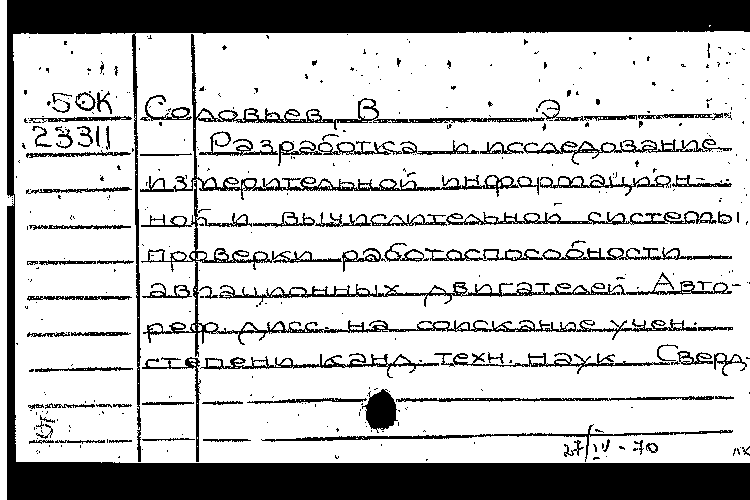 50К Соловьев, В Э
23311 Разработка и исследование
измерительной информацион-
ной и вычислительной системы
проверки работоспособности
авиационных двигателей. Авто-
реф. дисс. на соискание учен.
степени канд. техн. наук. Сверд-
5
27/IV-70